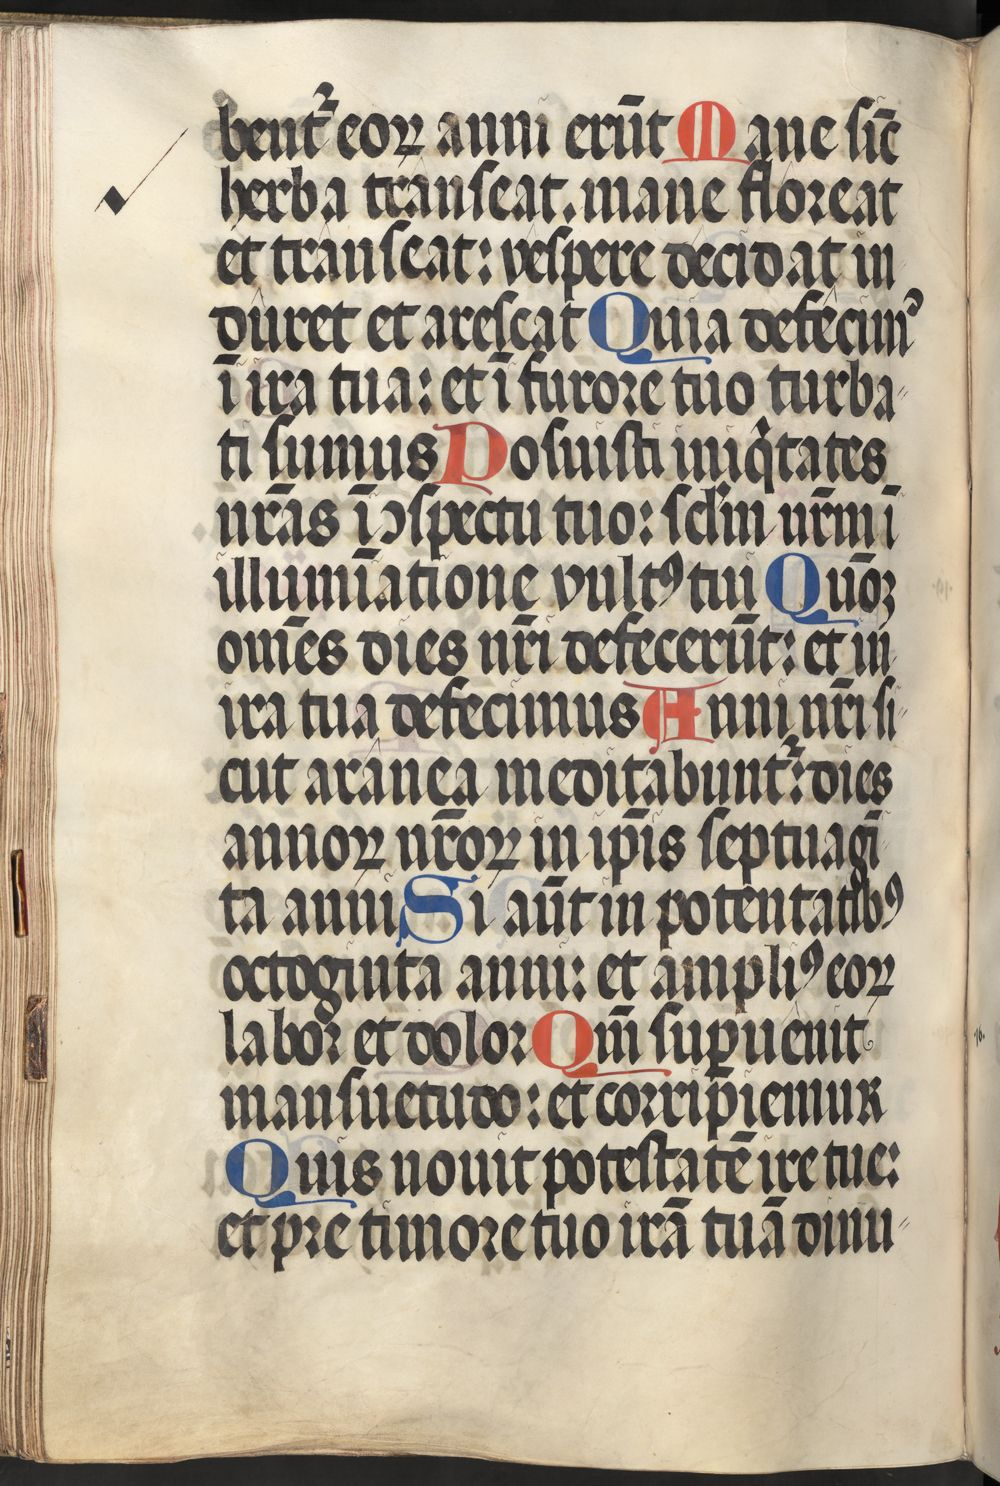 bent᷑ eoꝝ anni erūt Mane sic̄
herba transeat. mane floreat
et transeat: vespere decidat in
duret et arescat Quia defecim᷒
ī ira tua: et ī furore tuo turba-
ti sumus Posuisti iniqͥtates
nr̄as ī ↄspectu tuo: sclm̄ nr̄m ī
illumīatione vultꝰ tui Quō​ꝫ
om̄es dies nr̄i defecerūt: et in
ira tua defecimus Anni nr̄i si-
cut aranea meditabunt᷑: dies
annoꝝ nr̄oꝝ in ip̄is septuagī
ta anni Si aūt in potentatibꝰ
octoginta anni: et ampliꝰ eoꝝ
labor et dolor Qm̄ suꝑuenit
mansuetudo: et corripiemur
Quis nouit potestatē ire tue:
et pre timore tuo irā tuā dinu-